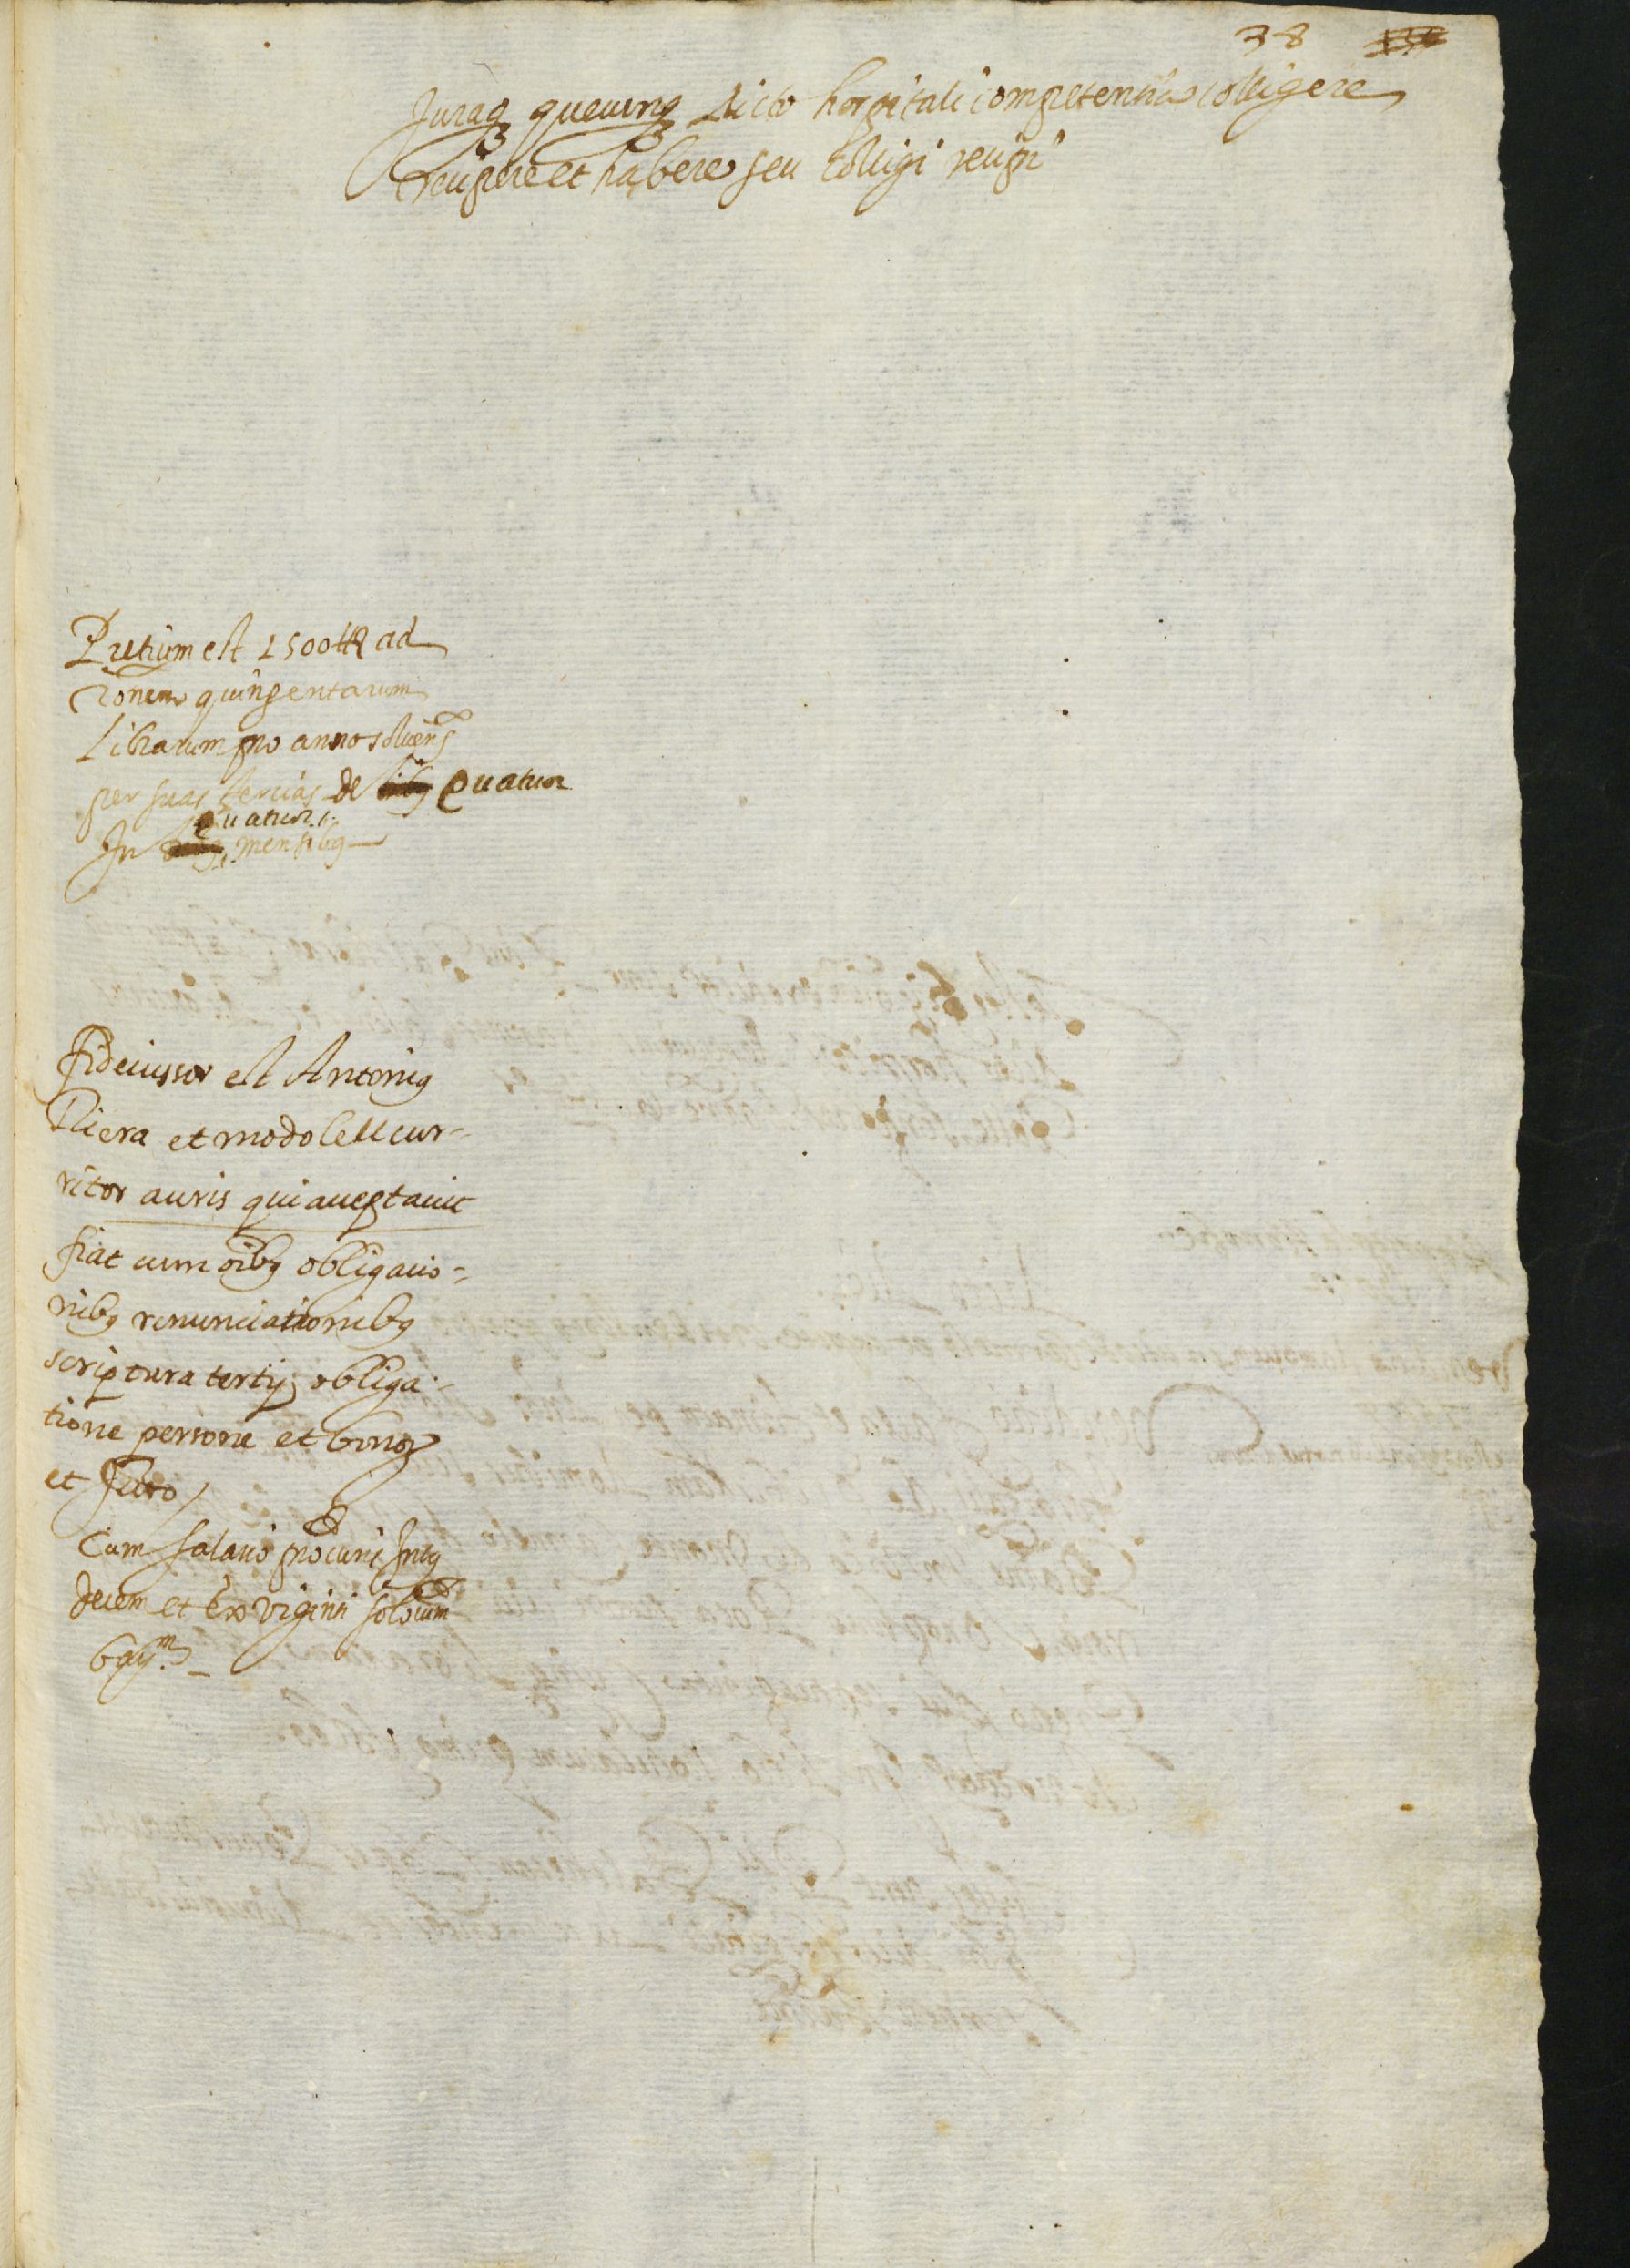 38
Juraq3 quecunq3 dicto hospitali competentia colligere
recipere et habere seu colligi recipi
Pretium est 1500 ₶ ad
ronem quingentarum
Librarum pro anno solvens
per suas tercias de Quatuor
quatuor
In mensibq
fideiussor est Antoniq
Riera et modolell cur-
ritor auris qui acceptavit
fiat cum oibq obligacio-
nibq renunciationibq
scriptura tertij obliga-
tione persone et bonoR
et Juro
Cum salario procuris Intq
decem et Ex viginti solidum